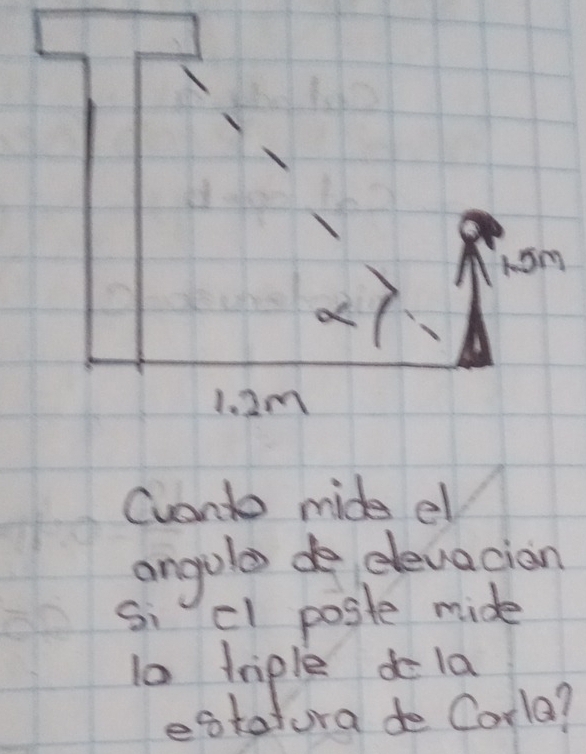 1.5m
α
1.2m
Cuanto mide el
angulo de elevación
si el poste mide
lo triple de la
estatura de Carla?